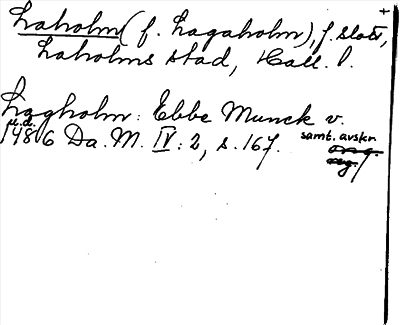 Laholm (f. Lagaholm), f. slott, +
Laholms stad, Hall. l.
Lagholm: Ebbe Munck v.
u.d.
1486 Da. M. IV: 2, s. 167. samt. avskr.